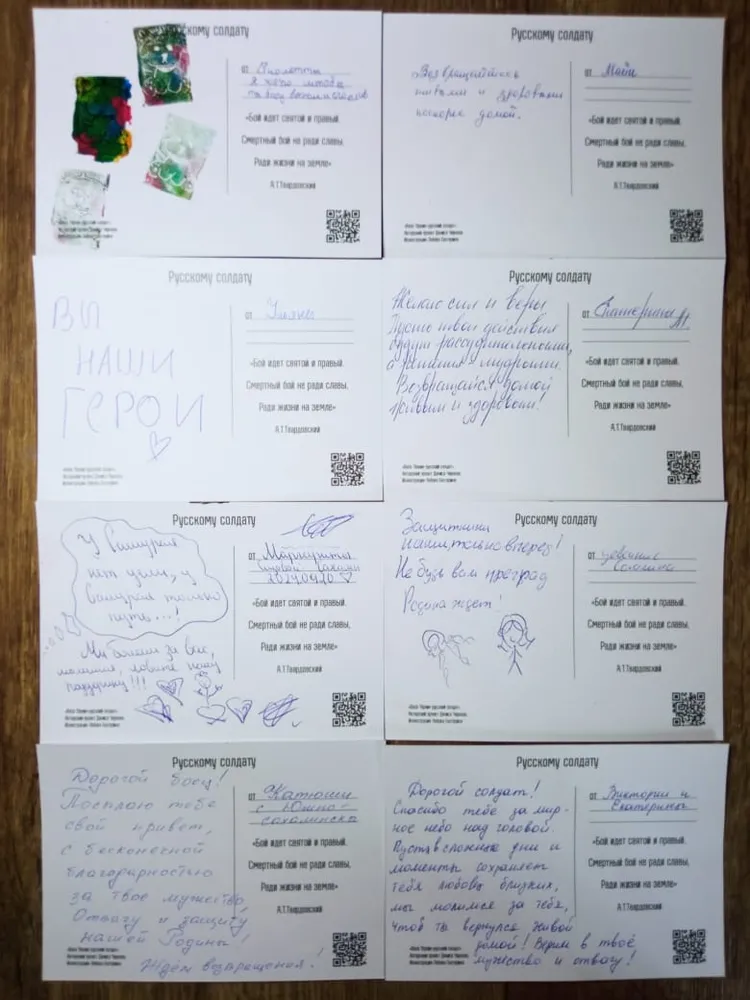 Русскому солдату
от Виолетты
Я хочу чтобы
«Бой идет святой и правый.
Смертный бой не ради славы,
Ради жизни на земле»
А.Т.Твардовский
Русскому солдату
Возвращайтесь
живыми и здоровыми
поскорее домой.
от Майи
«Бой идет святой и правый.
Смертный бой не ради славы,
Ради жизни на земле»
А.Т.Твардовский
Русскому солдату
ВЫ
НАШИ
ГЕРОИ
от Ульяны
«Бой идет святой и правый.
Смертный бой не ради славы,
Ради жизни на земле»
А.Т.Твардовский
Русскому солдату
Желаю сил и веры
Пусть твои действия
будут рассудительными,
а решения - мудрыми.
Возвращайся домой
живым и здоровым!
от Екатерины
«Бой идет святой и правый.
Смертный бой не ради славы,
Ради жизни на земле»
А.Т.Твардовский
Русскому солдату
У самурая
нет цели, у
самурая только
путь...!
Мы болеем за вас,
ловите нашу
поддержку!!!
от
«Бой идет святой и правый.
Смертный бой не ради славы,
Ради жизни на земле»
А.Т.Твардовский
Русскому солдату
Защитники
наши,только вперед!
Не будь вам преград
Родина ждет!
от
«Бой идет святой и правый.
Смертный бой не ради славы,
Ради жизни на земле»
А.Т.Твардовский
Русскому солдату
Дорогой боец!
Посылаю тебе
свой привет,
с бесконечной
благодарностью
за твое мужество,
Отвагу и защиту
нашей Родины!
Ждём возвращения!
от Катюши
с Южно-
сахалинска
«Бой идет святой и правый.
Смертный бой не ради славы,
Ради жизни на земле»
А.Т.Твардовский
Русскому солдату
Дорогой солдат!
Спасибо тебе за мир-
ное небо над головой.
Пусть в сложные дни и
моменты сохраняет
тебя любовь близких,
мы молимся за тебя,
чтоб ты вернулся живой
домой! Верим в твоё
мужество и отвагу!
от Виктории и
Екатерины
«Бой идет святой и правый.
Смертный бой не ради славы,
Ради жизни на земле»
А.Т.Твардовский